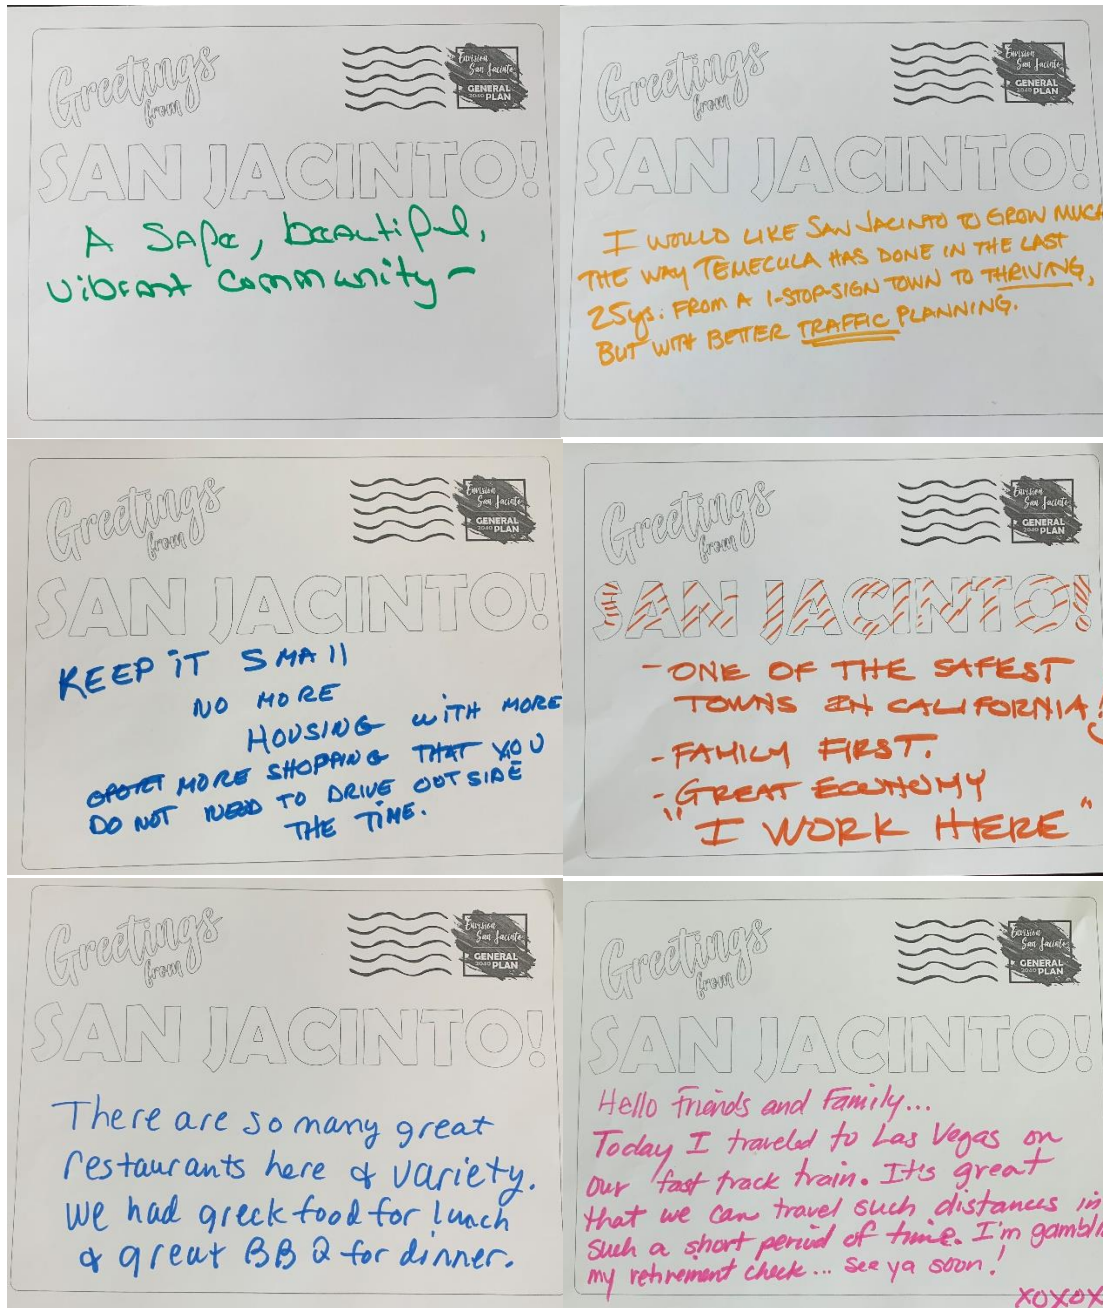 Greetings
from
Envision
San Jacinto
GENERAL
2040 PLAN
SAN JACINTO!
A SAFe, beautiful,
vibrant Community -
Greetings
from
Envision
San Jacinto
GENERAL
2040 PLAN
SAN JACINTO!
I WOULD LIKE SAN JACINTO TO GROW MUCH
THE WAY TEMECULA HAS DONE IN THE LAST
25ys. FROM A 1-STOP-SIGN TOWN TO THRIVING,
BUT WITH BETTER TRAFFIC PLANNING.
Greetings
from
Envision
San Jacinto
GENERAL
2040 PLAN
SAN JACINTO!
KEEP iT SMAll
NO MORE
HOUSING WITH MORE
MORE SHOPPING THAT YOU
DO NOT NEED TO DRIVE OUTSIDE
THE TIME.
Greetings
from
Envision
San Jacinto
GENERAL
2040 PLAN
SAN JACINTO!
- ONE OF THE SAFEST
TOWNS IN CALIFORNIA!
- FAMILY FIRST.
- GREAT ECONOMY
"I WORK HERE"
Greetings
from
Envision
San Jacinto
GENERAL
2040 PLAN
SAN JACINTO!
There are so many great
restaurants here & variety.
We had greek food for lunch
& great BBQ for dinner.
Greetings
from
Envision
San Jacinto
GENERAL
2040 PLAN
SAN JACINTO!
Hello Friends and Family...
Today I traveled to Las Vegas on
our fast track train. It's great
that we can travel such distances in
such a short period of time. I'm gambli
my retirement check... see ya soon!
XOXOX